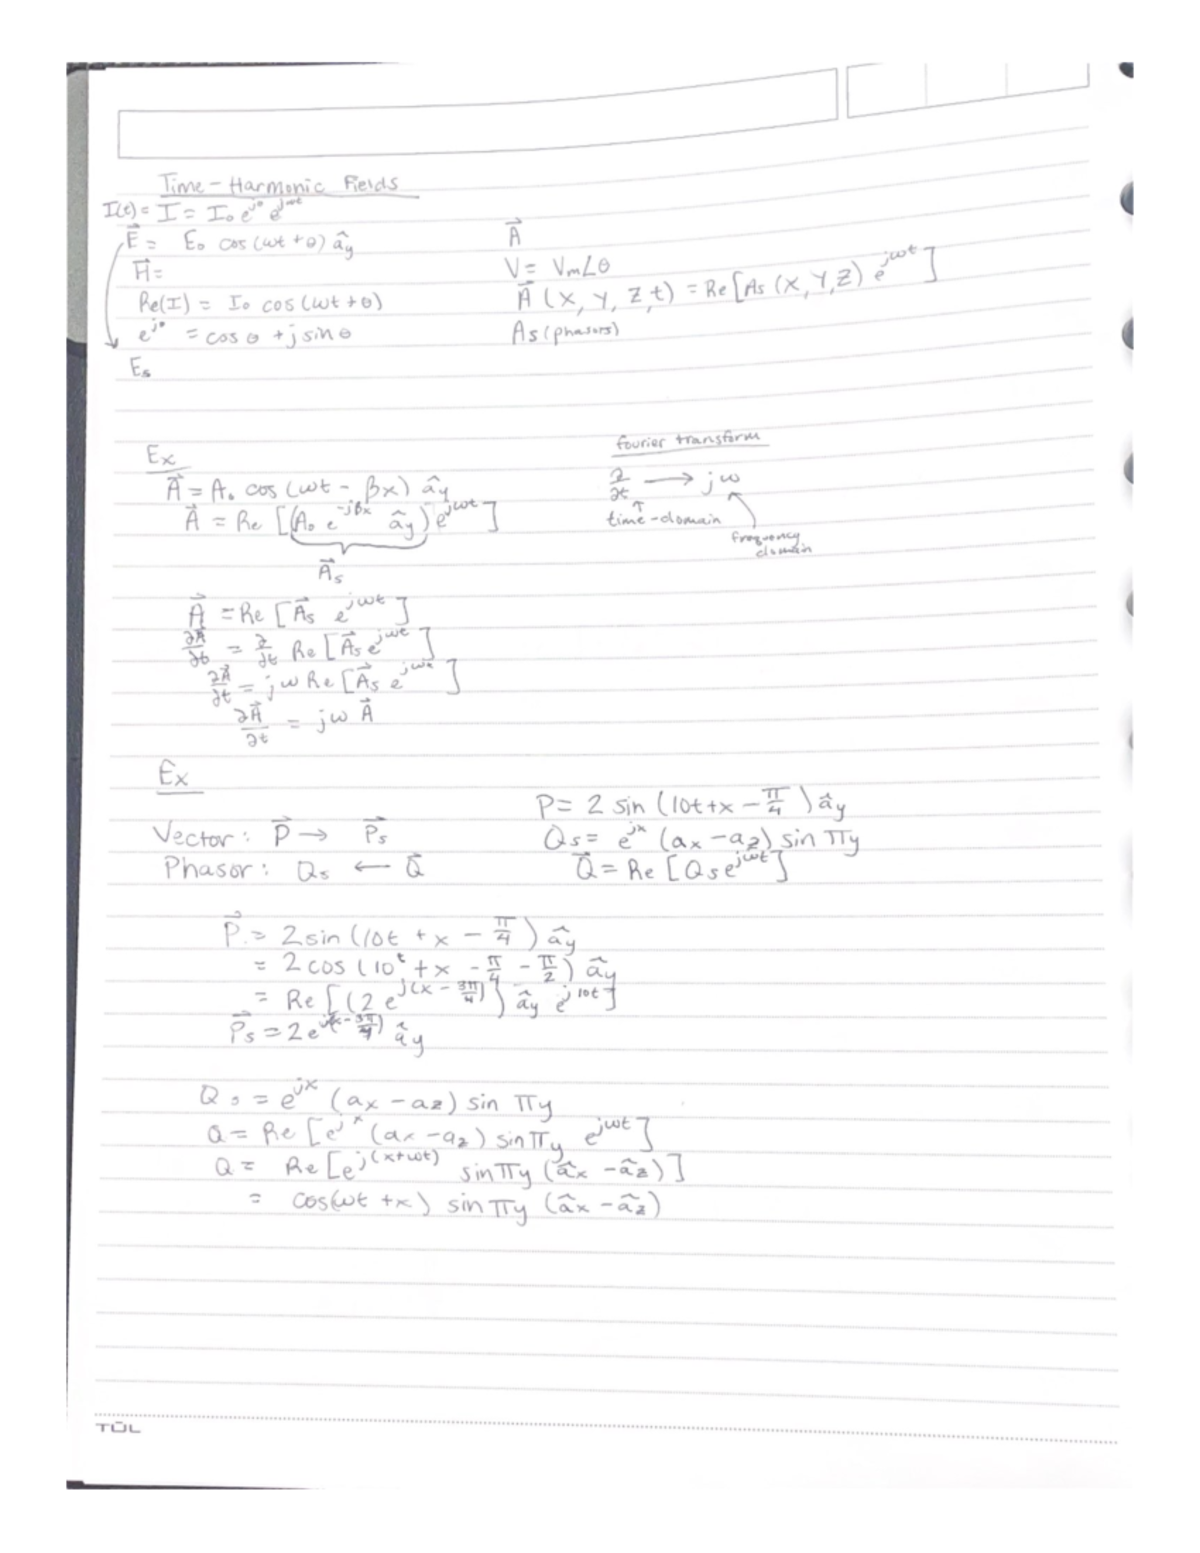 Time-Harmonic Fields
I(t) = I = I₀ e^{jθ} e^{jωt}
E⃗ = E₀ cos(ωt + θ) â_y
H⃗ =
Re(I) = I₀ cos(ωt + θ)
e^{jθ} = cos θ + j sin θ
E_s
A⃗
V = V_m∠θ
A⃗ (X, Y, Z, t) = Re[A_s (X, Y, Z) e^{jωt}]
A_s (phasors)
Ex
A⃗ = A₀ cos (ωt - βx) â_y
A⃗ = Re [(A₀ e^{-jβx} â_y) e^{jωt}]
A⃗_s
fourier transform
∂/∂t → jω
time-domain
frequency
domain
A⃗ = Re [A⃗_s e^{jωt}]
∂A⃗/∂t = ∂/∂t Re [A⃗_s e^{jωt}]
∂A⃗/∂t = jω Re [A⃗_s e^{jωt}]
∂A⃗/∂t = jω A⃗
Ex
Vector: P⃗ → P⃗_s
Phasor: Q_s ← Q⃗
P = 2 sin (10t + x - π/4) â_y
Q_s = e^{jx} (a_x - a_z) sin πy
Q⃗ = Re [Q_s e^{jωt}]
P⃗ = 2 sin (10t + x - π/4) â_y
= 2 cos (10t + x - π/4 - π/2) â_y
= Re [(2 e^{j(x - 3π/4)}) â_y e^{j10t}]
P⃗_s = 2 e^{j(x - 3π/4)} â_y
Q_s = e^{jx} (a_x - a_z) sin πy
Q = Re [e^{jx} (a_x - a_z) sin πy e^{jωt}]
Q = Re [e^{j(x+ωt)} sin πy (â_x - â_z)]
= cos(ωt + x) sin πy (â_x - â_z)
TŪL